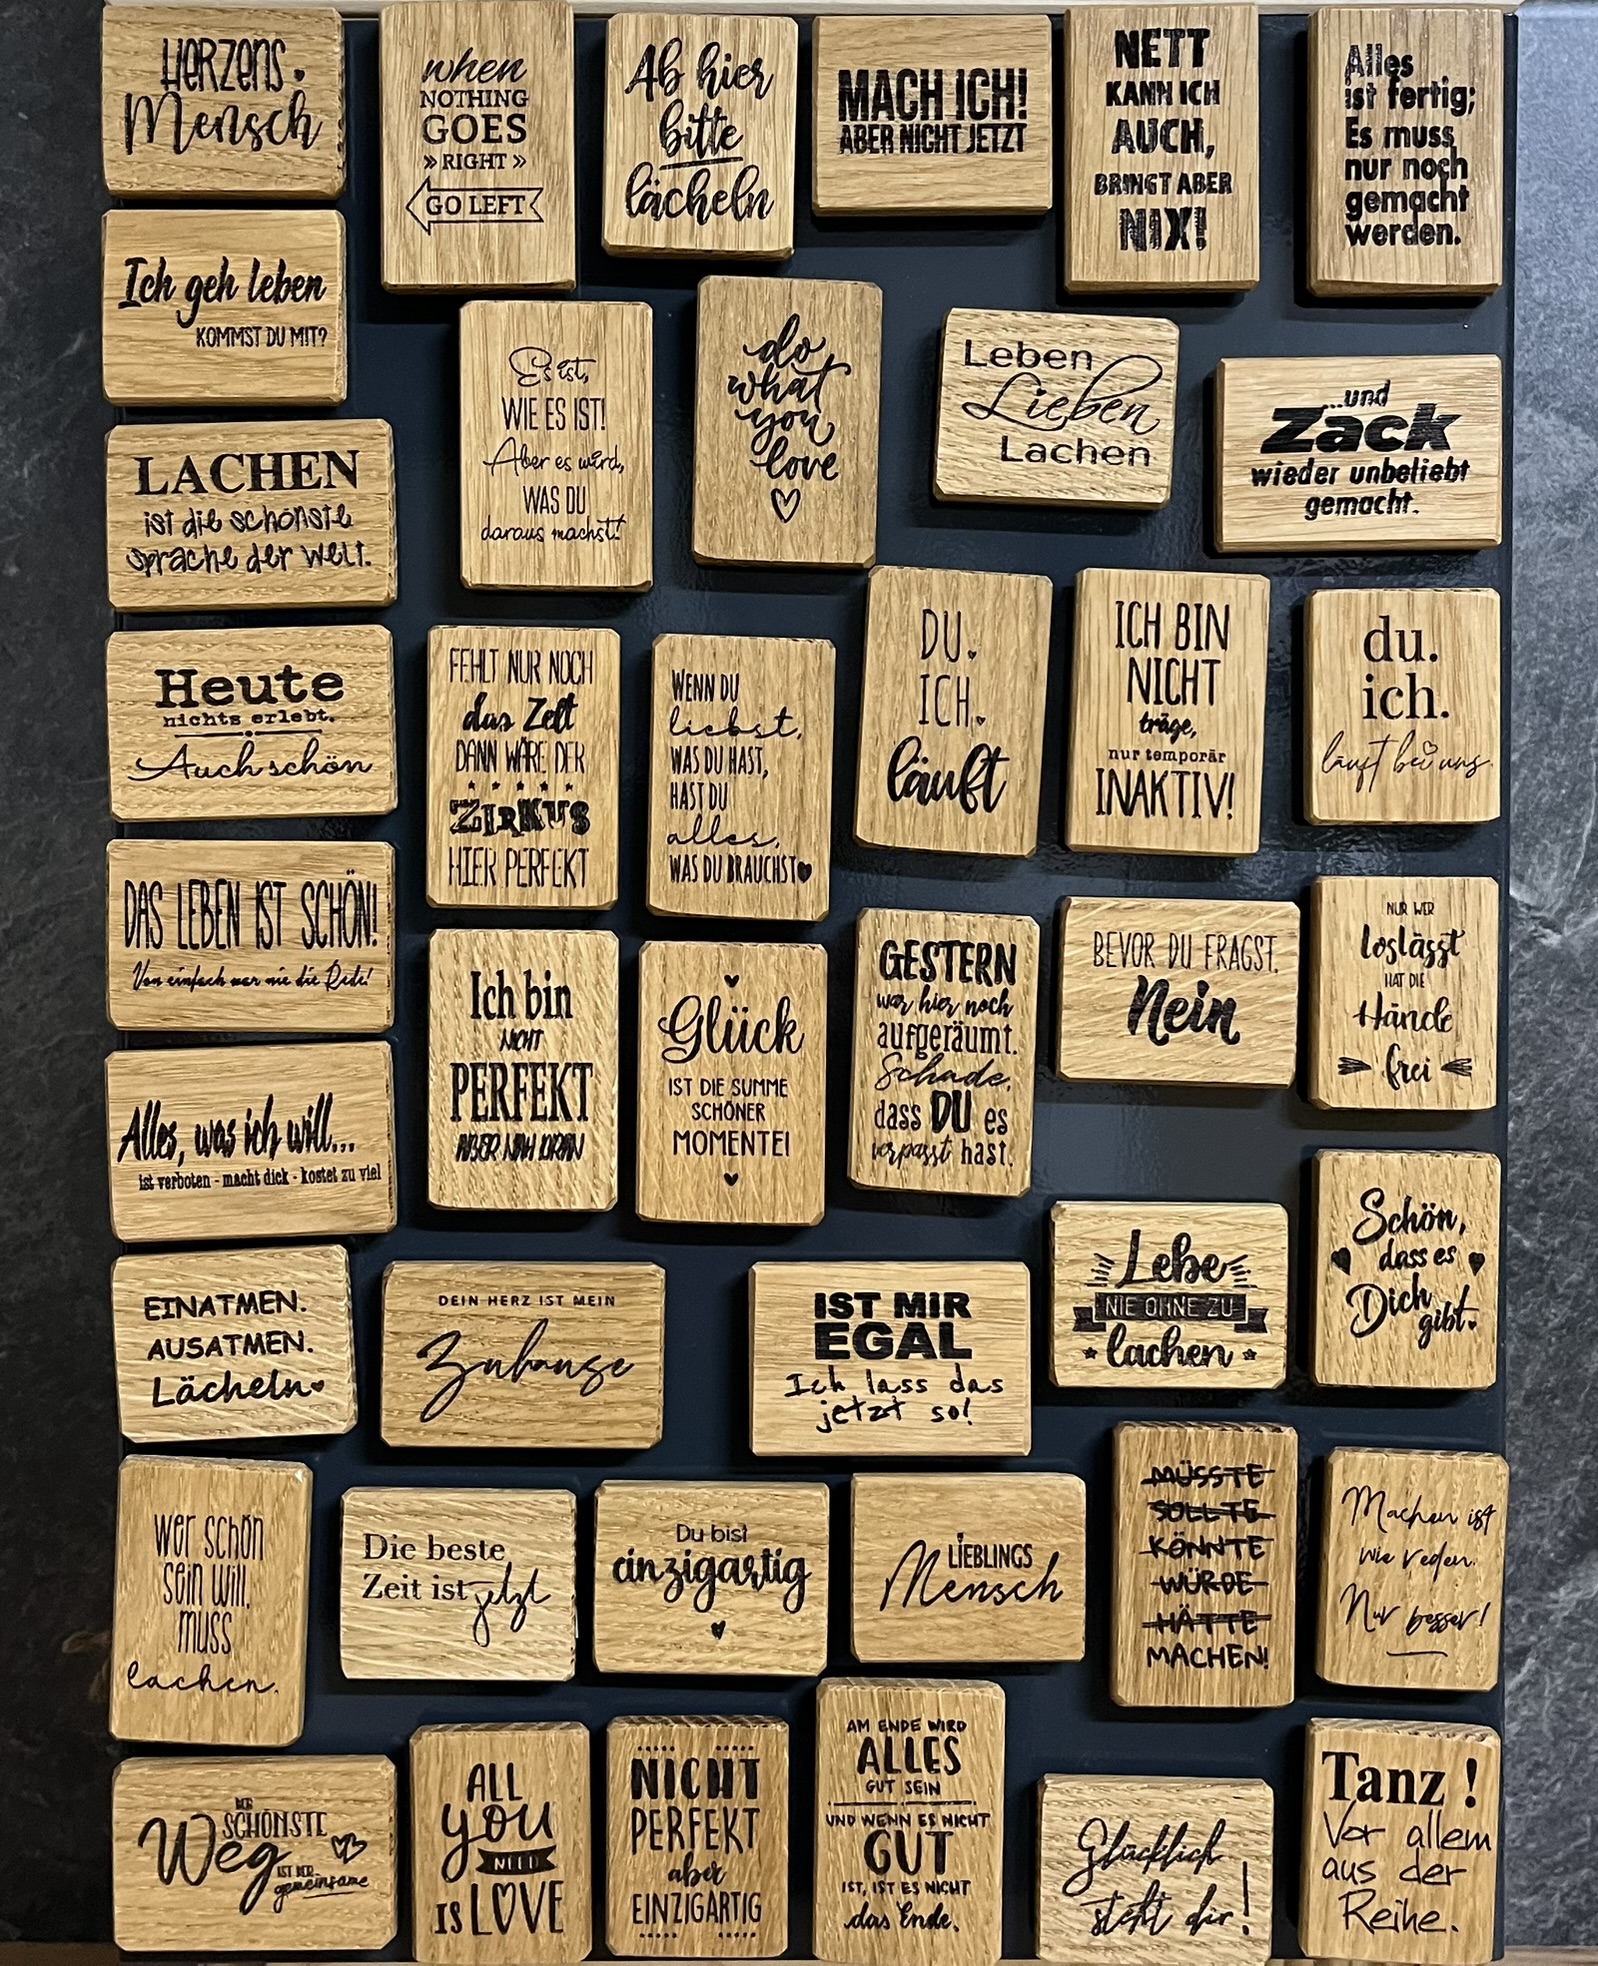 HERZENS
Mensch
when
NOTHING
GOES
» RIGHT »
GO LEFT
Ab hier
bitte
lächeln
MACH ICH!
ABER NICHT JETZT
NETT
KANN ICH
AUCH,
BRINGT ABER
NIX!
Alles
ist fertig;
Es muss
nur noch
gemacht
werden.
Ich geh leben
KOMMST DU MIT?
Es ist,
WIE ES IST!
Aber es wird,
WAS DU
daraus machst!
do
what
you
love
Leben
Lieben
Lachen
...und
Zack
wieder unbeliebt
gemacht.
LACHEN
ist die schönste
Sprache der Welt.
Heute
nichts erlebt.
Auch schön
FEHLT NUR NOCH
das Zelt
DANN WÄRE DER
ZIRKUS
HIER PERFEKT
WENN DU
liebst,
WAS DU HAST,
HAST DU
alles,
WAS DU BRAUCHST
DU.
ICH.
läuft
ICH BIN
NICHT
träge,
nur temporär
INAKTIV!
du.
ich.
läuft bei uns.
DAS LEBEN IST SCHÖN!
Von einfach war nie die Rede!
Ich bin
NICHT
PERFEKT
ABER NAH DRAN
Glück
IST DIE SUMME
SCHÖNER
MOMENTE!
GESTERN
war hier noch
aufgeräumt.
Schade,
dass DU es
verpasst hast.
BEVOR DU FRAGST.
Nein
NUR WER
loslässt
HAT DIE
Hände
frei
Alles, was ich will...
ist verboten - macht dick - kostet zu viel
EINATMEN.
AUSATMEN.
Lächeln
DEIN HERZ IST MEIN
Zuhause
IST MIR
EGAL
Ich lass das
jetzt so!
Lebe
NIE OHNE ZU
lachen
Schön,
dass es
Dich
gibt.
wer schön
sein will,
muss
lachen.
Die beste
Zeit ist jetzt
Du bist
einzigartig
LIEBLINGS
Mensch
MÜSSTE
SOLLTE
KÖNNTE
WÜRDE
HÄTTE
MACHEN!
Machen ist
wie reden.
Nur besser!
DER
SCHÖNSTE
Weg
IST DER
gemeinsame
ALL
YOU
NEED
IS LOVE
NICHT
PERFEKT
aber
EINZIGARTIG
AM ENDE WIRD
ALLES
GUT SEIN
UND WENN ES NICHT
GUT
IST, IST ES NICHT
das Ende.
Glücklich
steht dir!
Tanz !
Vor allem
aus der
Reihe.